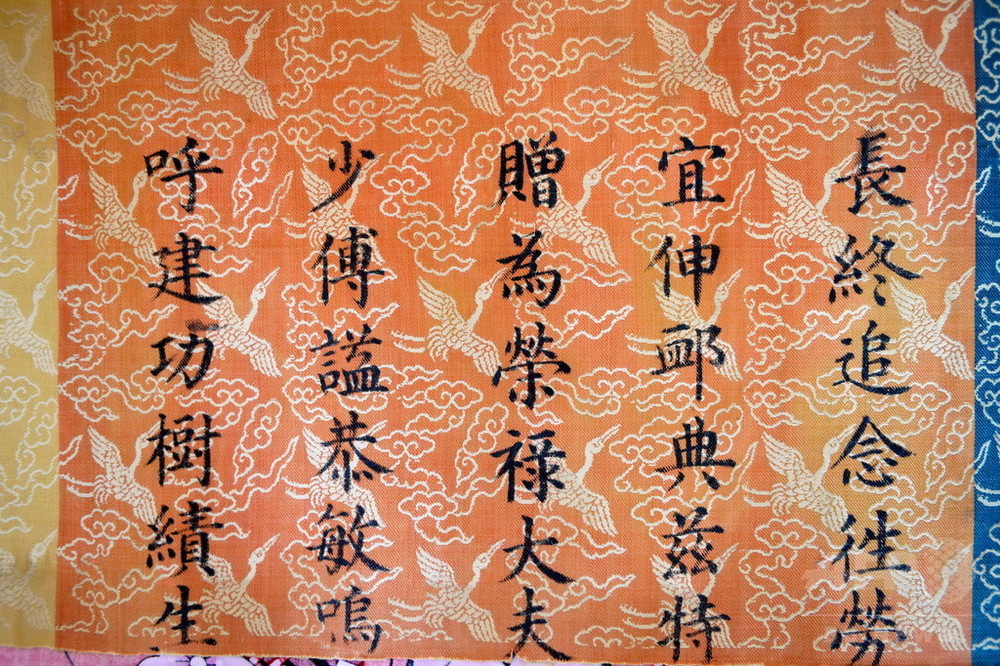 長終追念徃勞
宜伸䘏典茲特
贈為榮祿大夫
少傅謚恭敏嗚
呼建功樹績生